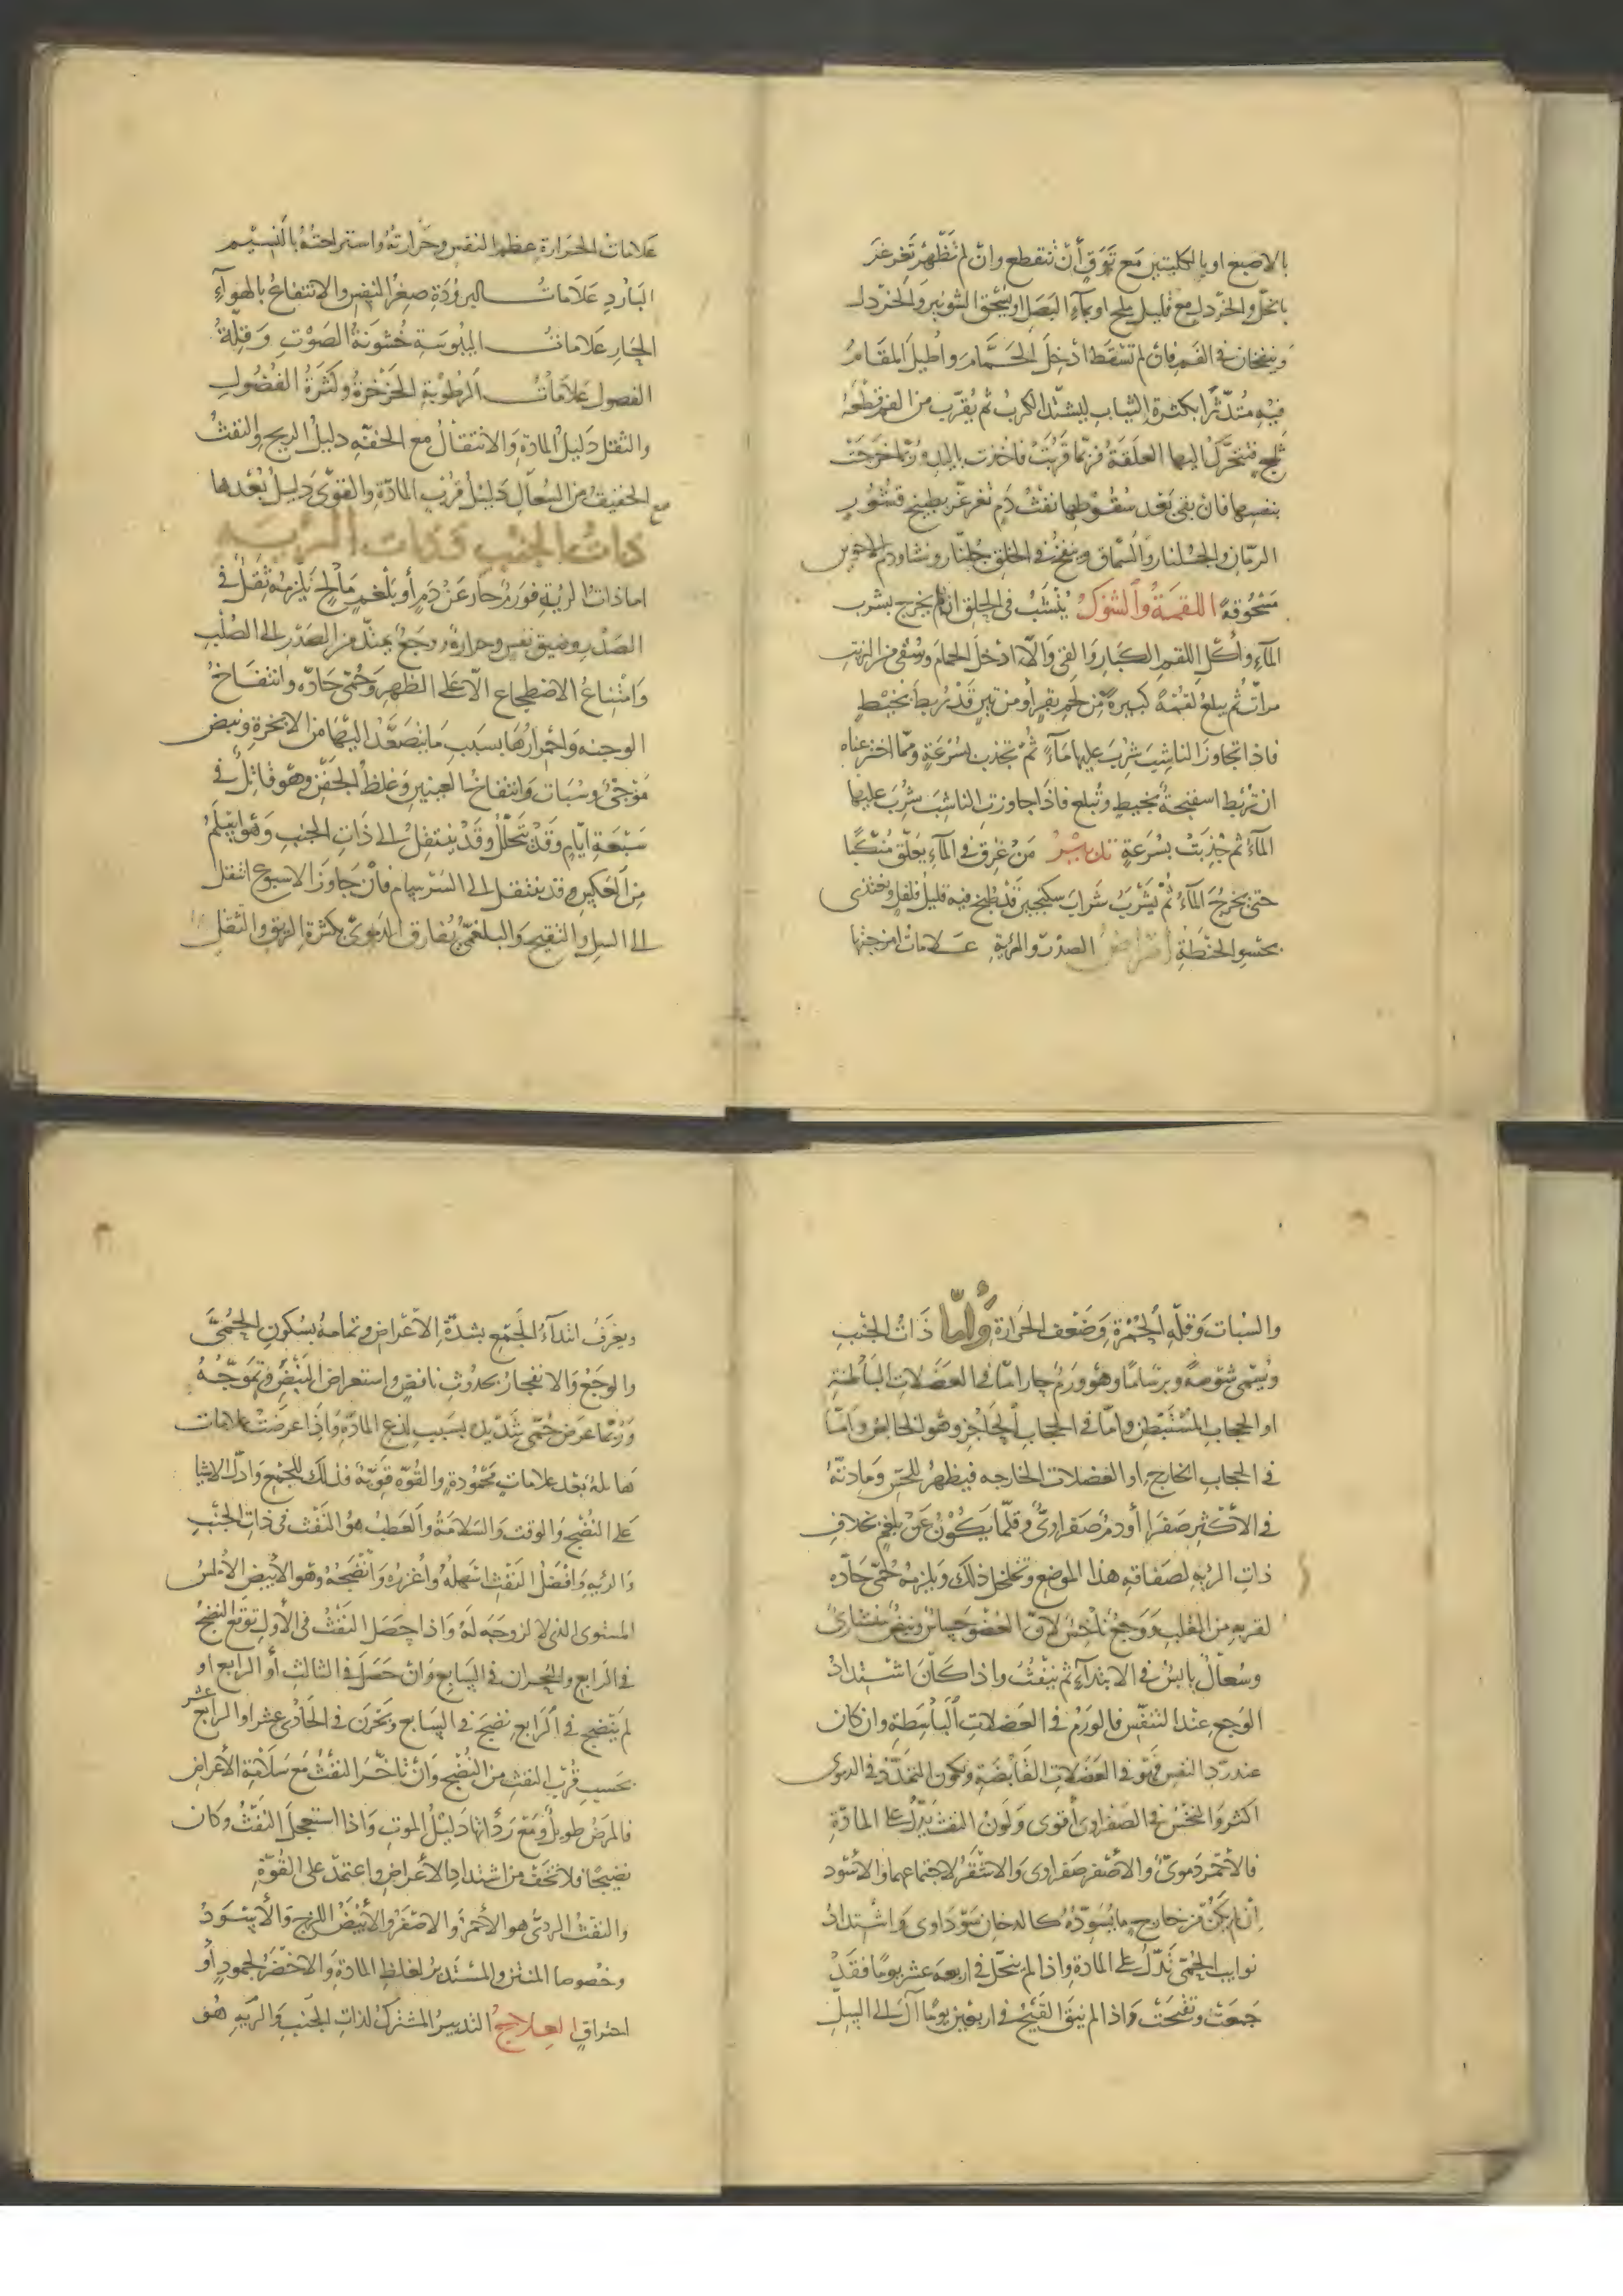 بالاصبع او بالكلبتين مع توق أن تنقطع وان لم تظهر تغرغر
بالخل والخردل مع قليل ملح او بماء البصل او يسحق الشونيز والخردل
وينفخان في الفم فان لم تسقط ادخل الحمام واطيل المقام
فيه متدثرا بكثرة الثياب ليشتد الكرب ثم يقرب من الفم قطعة
ثلج فتتحرك اليها العلقة فربما قربت فاخذت باليد وربما خرجت
بنفسها فان بقى بعد سقوطها نفث دم تغرغر بطبيخ قشور
الرمان والجلنار والسماق وينفخ في الحلق جلنار ونشا ودم الاخوين
مسحوقة اللقمة والشوك ينشب في الحلق ان لم يخرج بشرب
الماء واكل اللقم الكبار والقى والا ادخل الحمام وسقى من الزيت
مرات ثم يبلع لقمة كبيرة من لحم بقر أو من تين قد ربط بخيط
فاذا تجاوز الناشب شرب عليها ماء ثم تجذب بسرعة ومما اخترعناه
ان تربط اسفنجة بخيط وتبلع فاذا جاوزت الناشب شرب عليها
الماء ثم جذبت بسرعة تدبير من غرق في الماء يعلق منكبا
حتى يخرج الماء ثم يشرب شراب سكنجبين قد طبخ فيه قليل فلفل ويغتذى
بحسو الحنطة أمراض الصدر والرية علامات امزجتها
علامات الحرارة عظم النفس وحرارته واستراحته بالنسيم
البارد علامات البرودة صغر النفس والانتفاع بالهواء
الحار علامات اليبوسة خشونة الصوت وقلة
الفصول علامات الرطوبة الخرخرة وكثرة الفضول
والثقل دليل المادة والانتقال مع الخفة دليل الريح والنفث
الخفيف من السعال دليل قرب المادة والقوى دليل بعدها
ذات الجنب وذات الرية
اما ذات الرية فورم حار عن دم أو بلغم مالح يلزمه ثقل في
الصدر وضيق نفس وحرارة ووجع يمتد من الصدر الى الصلب
وامتناع الاضطجاع الا على الظهر وحمى حادة وانتفاخ
الوجنة واحمرارها بسبب ما يتصعد اليها من الابخرة ونبض
موجى وسبات وانتفاخ العينين وغلظ الجفن وهو قاتل في
سبعة ايام وقد يتحلل وقد ينتقل الى ذات الجنب وهو اسلم
من العكس وقد ينتقل الى السرسام فان جاوز الاسبوع انتقل
الى السل والتقيح والبلغمى يفارق الدموى بكثرة الريق والثقل
والسبات وقلة الحمرة وضعف الحرارة وأما ذات الجنب
ويسمى شوصة وبرساما وهو ورم حار اما في العضلات الباطنة
او الحجاب المستبطن واما في الحجاب الحاجز وهو الخالص واما
في الحجاب الخارج او العضلات الخارجة فيظهر للحس ومادته
في الأكثر صفرا أو دم صفراوى وقلما يكون عن بلغم بخلاف
ذات الرية لصفاقة هذا الموضع وتخلخل ذلك ويلزمه حمى حادة
لقربه من القلب ووجع ناخس لان العضو حساس ونبض منشارى
وسعال يابس في الابتداء ثم ينفث واذا كان اشتداد
الوجع عند التنفس فالورم في العضلات الباسطة وان كان
عند رد النفس فهو في العضلات القابضة ويكون التمدد في الدموى
اكثر والنخس في الصفراوى أقوى ولون النفث يدل على المادة
فالأحمر دموى والأصفر صفراوى والاشقر لاجتماعهما والاسود
ان لم يكن من خارج ما يسوده كالدخان سوداوى واشتداد
نوايب الحمى تدل على المادة واذا لم ينحل في اربعة عشر يوما فقد
جمعت وتقيحت واذا لم ينق القيح في اربعين يوما آل الى السل
ويعرف ابتداء الجمع بشدة الأعراض وتمامه بسكون الحمى
والوجع والانفجار بحدوث نافض واستعراض النبض وتموجه
وربما عرض حمى شديدة بسبب لذع المادة واذا عرضت علامات
هائلة بعد علامات محمودة والقوة قوية فذلك للجمع وادل الاشيا
على النضج والوقت والسلامة والعطب هو النفث في ذات الجنب
والرية وافضل النفث اسهله واغزره وأنضجه وهو الأبيض الأملس
المستوى الذى لا لزوجة له واذا حصل النفث في الأول توقع النضج
في الرابع والبحران في السابع وان حصل في الثالث أو الرابع او
لم ينضج في الرابع نضج في السابع وبحرن في الحادى عشر او الرابع عشر
بحسب قرب النفث من النضج وان تأخر النفث مع سلامة الأعراض
فالمرض طويل ومع رداتها دليل الموت واذا استعجل النفث وكان
نضيجا فلا تخف من اشتداد الأعراض واعتمد على القوة
والنفث الردى هو الأحمر والاصفر والأبيض اللزج والأسود
وخصوصا المنتن والمستدير لغلظ المادة والاخضر لجمود أو
احتراق العلاج التدبير المشترك لذات الجنب والرية هو